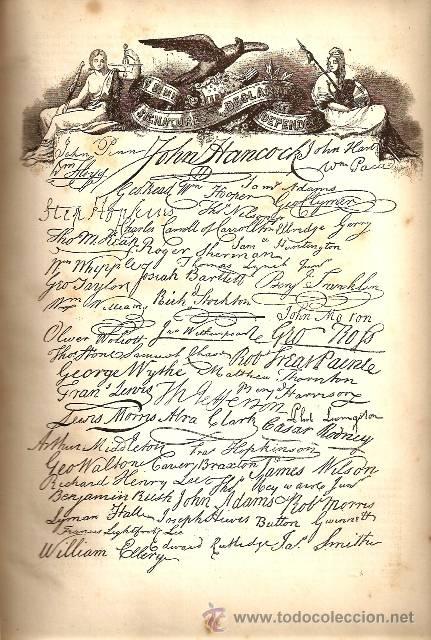 SIGNATURES
DECLARATION
OF
John Penn John Hancock John Hart
Wm Hooyg Wm Paca
Geo Read Wm Hooper Saml Adams
Geo Clymer
Step Hopkins Thos Nelson
Charles Carroll of Carrollton Elbridge Gerry
Tho M Kean Roger Sherman Saml Huntington
Wm Whipple Thomas Lynch Junr
Geo Taylor Josiah Bartlett Benj Franklin
Wm Williams Richd Stockton
John Morton
Oliver Wolcott Jno Witherspoon Geo Ross
Thos Stone Samuel Chase Robt Treat Paine
George Wythe Matthew Thornton
Frans Lewis Th Jefferson Benj Harrison
Lewis Morris Abra Clark Phil Livingston
Cæsar Rodney
Arthur Middleton Fras Hopkinson
Geo Walton Carter Braxton James Wilson
Richard Henry Lee Thos Heyward Junr
Benjamin Rush John Adams Robt Morris
Lyman Hall Joseph Hewes Button Gwinnett
Francis Lightfoot Lee
William Ellery Edward Rutledge Jas Smith
todocoleccion.net